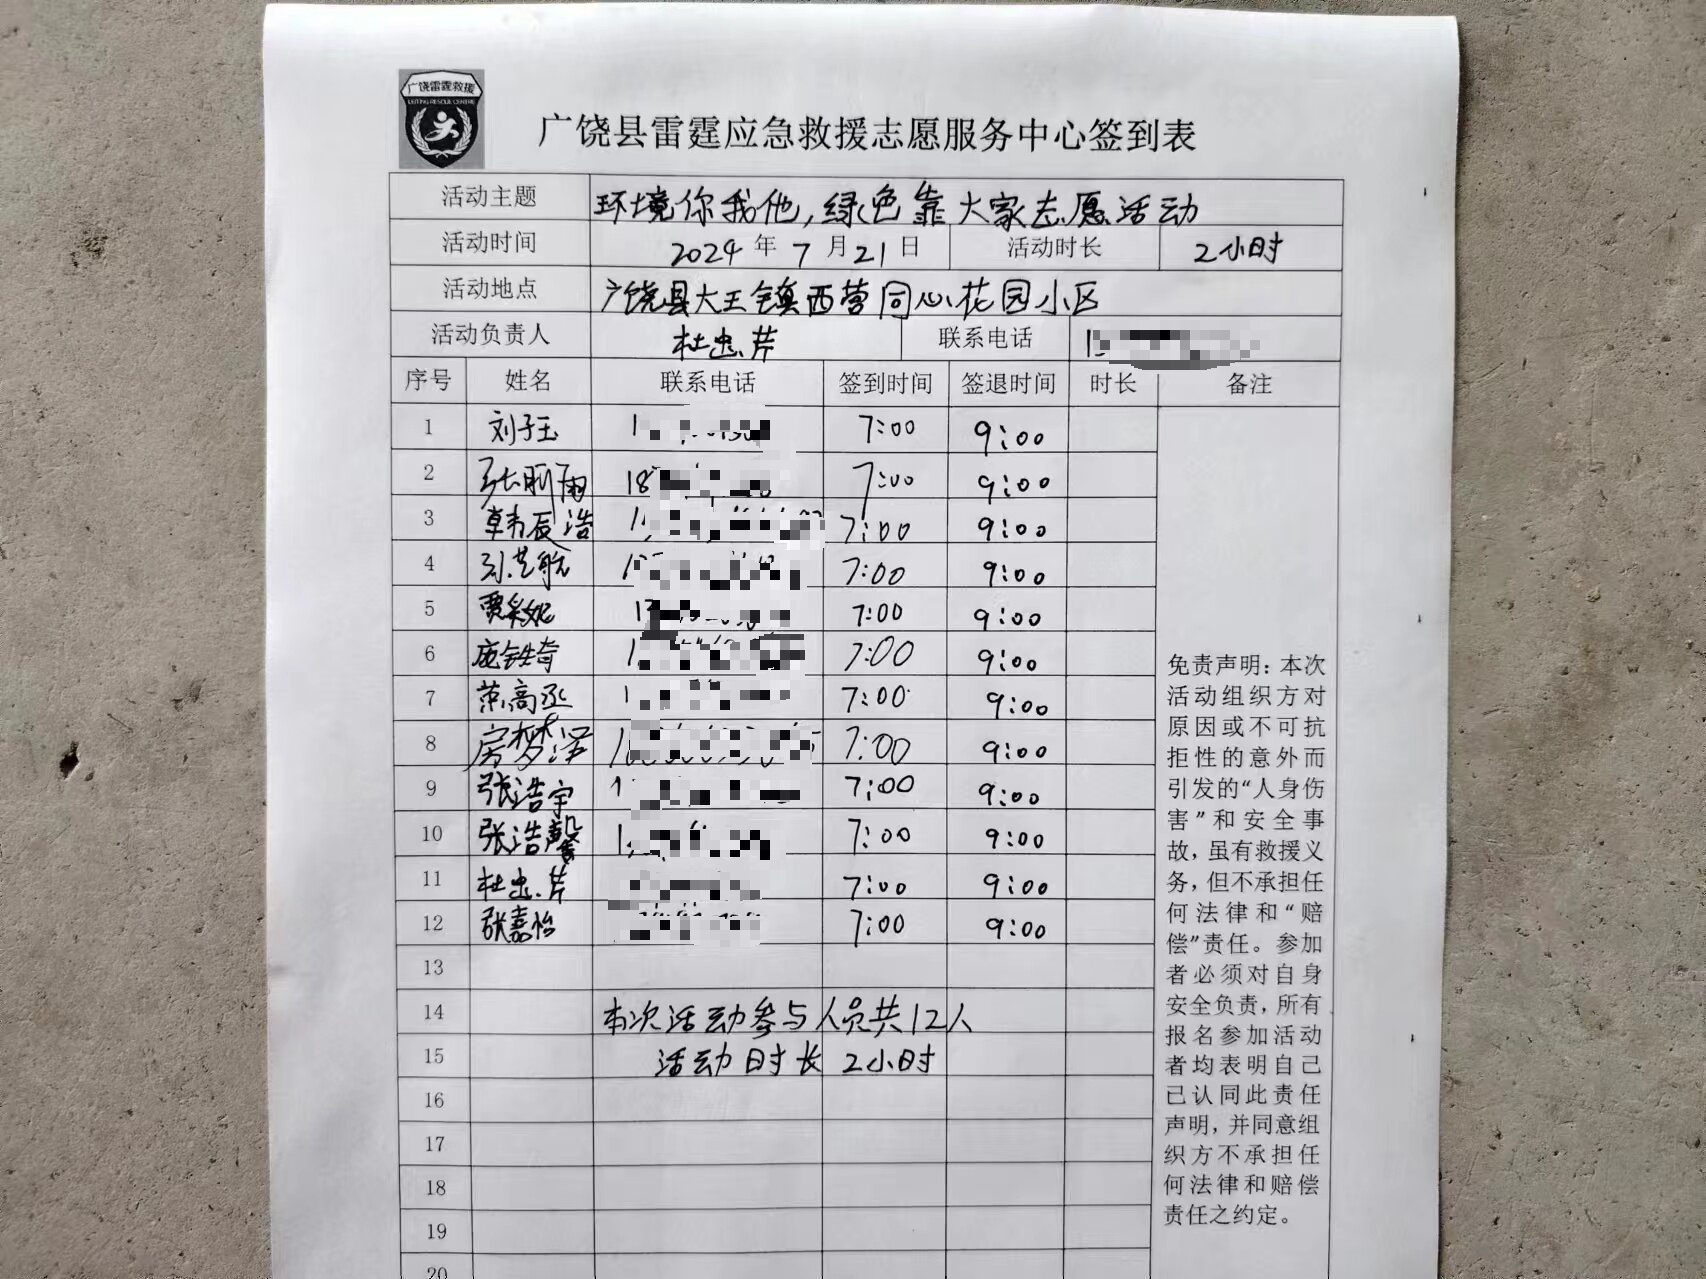 广饶雷霆救援
LEITING RESCUE CENTRE
广饶县雷霆应急救援志愿服务中心签到表
活动主题 环境你我他,绿色靠大家志愿活动
活动时间 2024年7月21日 活动时长 2小时
活动地点 广饶县大王镇西营同心花园小区
活动负责人 杜忠芹 联系电话 1
序号 姓名 联系电话 签到时间 签退时间 时长 备注
1 刘子玉 1 7:00 9:00
2 张 雨 18 7:00 9:00
3 韩辰浩 1 7:00 9:00
4 孙艺航 1 7:00 9:00
5 贾 妮 1 7:00 9:00
6 奇 1 7:00 9:00
7 高丞 1 7:00 9:00
8 房梦泽 1 7:00 9:00
9 张浩宇 1 7:00 9:00
10 张浩馨 1 7:00 9:00
11 杜忠芹 7:00 9:00
12 张嘉怡 7:00 9:00
13
14 本次活动参与人员共12人
15 活动时长 2小时
16
17
18
19
20
免责声明:本次
活动组织方对
原因或不可抗
拒性的意外而
引发的“人身伤
害”和安全事
故,虽有救援义
务,但不承担任
何法律和“赔
偿”责任。参加
者必须对自身
安全负责,所有
报名参加活动
者均表明自己
已认同此责任
声明,并同意组
织方不承担任
何法律和赔偿
责任之约定。